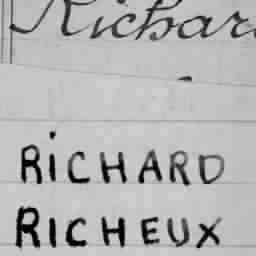 Richar
RiCHARD
RICHEUX